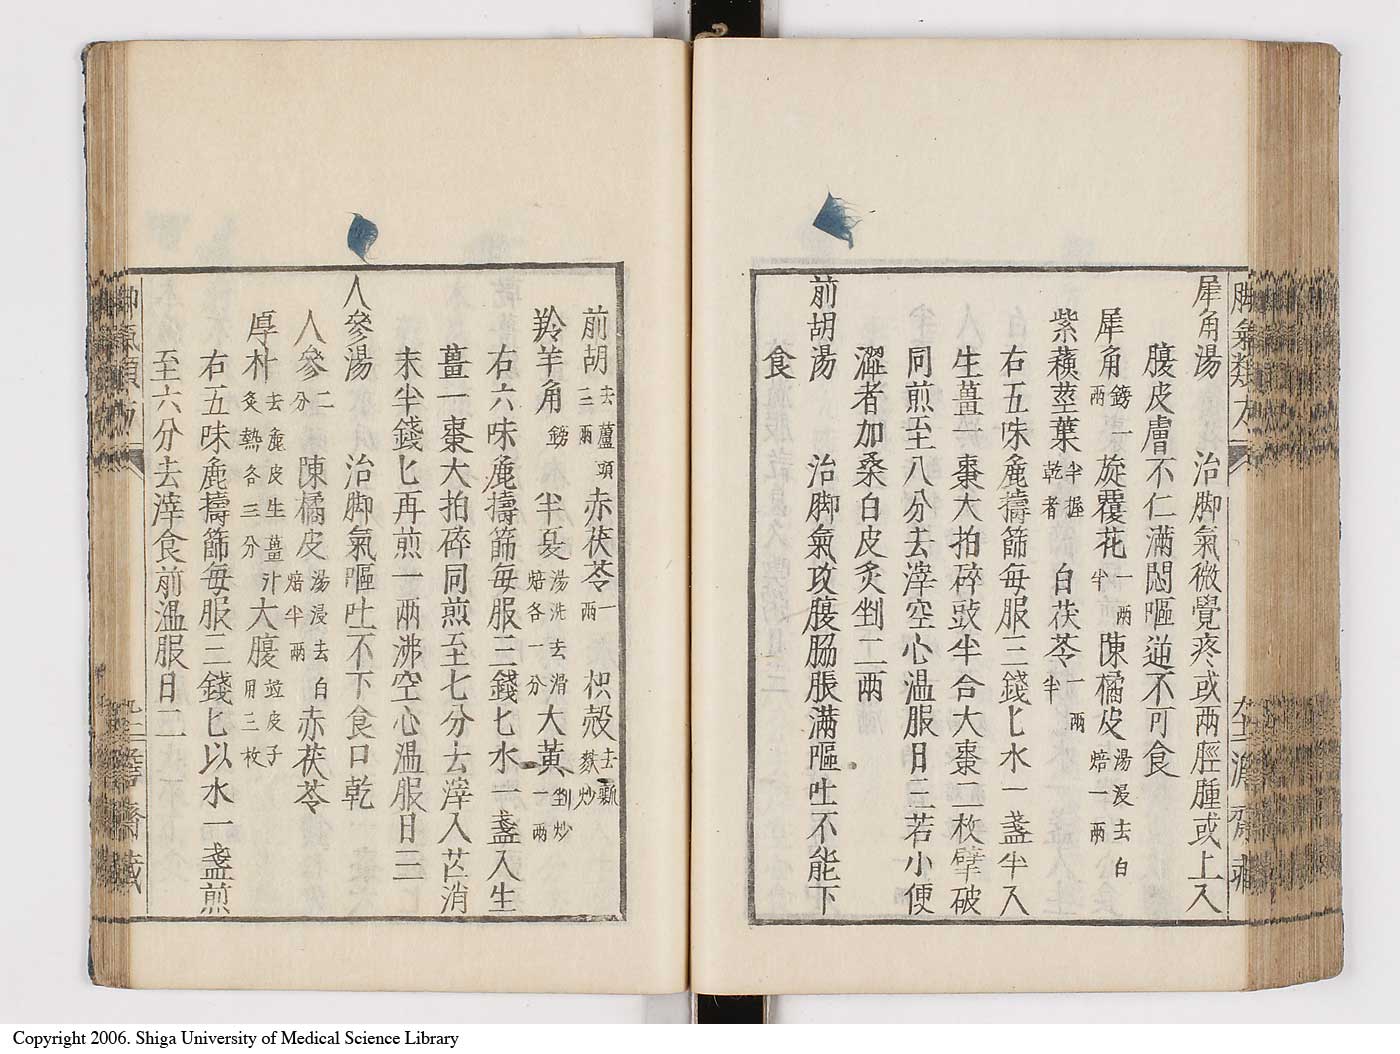 犀角湯　治脚氣微覺疼或兩脛腫或上入
腹皮膚不仁滿悶嘔逆不可食
犀角鎊一兩　旋覆花一兩半　陳橘皮湯浸去白焙一兩
紫蘓莖葉半握乾者　白茯苓一兩半
右五味麁擣篩每服三錢匕水一盞半入
生薑一棗大拍碎豉半合大棗二枚擘破
同煎至八分去滓空心温服日三若小便
澀者加桑白皮炙剉二兩
前胡湯　治脚氣攻腹脇脹滿嘔吐不能下
食
前胡去蘆頭三兩　赤茯苓一兩　枳殼去瓤麩炒
羚羊角鎊　半夏湯洗去滑焙各一分　大黃剉炒一兩
右六味麁擣篩每服三錢匕水一盞入生
薑一棗大拍碎同煎至七分去滓入芒消
末半錢匕再煎一兩沸空心温服日三
人參湯　治脚氣嘔吐不下食口乾
人參二分　陳橘皮湯浸去白焙半兩　赤茯苓
厚朴去麁皮生薑汁炙熱各三分　大腹竝皮子用三枚
右五味麁擣篩每服三錢匕以水一盞煎
至六分去滓食前温服日二
脚氣類方
Copyright 2006. Shiga University of Medical Science Library